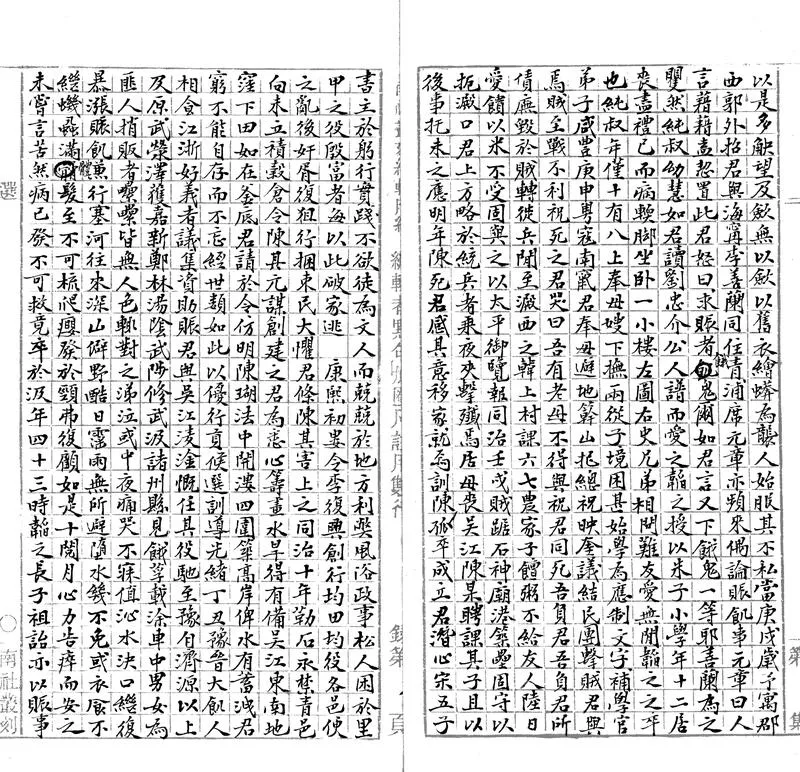 以是多觖望及歛無以歛以舊衣繪蟒為襲人始賬其不私當庚戌歲予寓郡
西郭外招君與海寗李善蘭同住青浦席元章亦頻來偶論賬飢事元章曰人
言藉藉盍恝置此君怒曰求賬者餓鬼爾如君言又下餓鬼一等耶善蘭為之
瞿然純叔幼慧如君讀劉忠介公人譜而愛之韜之授以朱子小學年十二居
喪盡禮已而病輭脚坐卧一小樓左圖右史兄弟相問難友愛無閒韜之之卒
也純叔年僅十有八上奉母嫂下撫兩從子境困甚始學為應制文字補學官
弟子咸豐庚申粤寇南竄君奉母避地簳山抵總祝映奎議結民團擊賊君與
焉賊至戰不利祝死之君哭曰吾有老母不得與祝君同死吾負君吾負君所
債廡毀於賊轉徙兵閒至澱西之韓上村課六七農家子饘粥不給友人陸日
愛饋以米不受固與之以太平御覽報同治壬戌賊踞石神廟港築壘固守以
扼澱口君上方略於統兵者乘夜夾擊殲焉居母喪吴江陳某聘課其子且以
後事托未之應明年陳死君感其意移家就為訓陳孤卒成立君潛心宗五子
書主於躬行實踐不欲徒為文人而兢兢於地方利獘風俗政事松人困於里
甲之役殷富者每以此破家逃 康熙初婁令李復興創行均田均役各邑便
之亂後奸胥復狙行捆東民大懼君條陳其害上之同治十年勒石永禁青邑
向未立積穀倉令陳其元謀創建之君為悉心籌畫水旱得有備吴江東南地
窪下田如在釜底君請於令仿明陳瑚法中開漊四圍築高岸俾水有蓄洩君
窮不能自存而不忘經世類如此以優行貢候選訓導光緒丁丑豫晉大飢人
相食江浙好義者議集資助賬君與吴江凌淦慨任其役馳至豫自濟源以上
及原武滎澤獲嘉新鄭林湯陰武陟修武汲諸州縣見餓莩載塗車中男女為
匪人捎販者嚶嚶皆無人色輒對之涕泣或中夜痛哭不寐值沁水決口繼復
暴漲賬飢黄行塞河往來深山僻野酷日霪雨無所避隨水幾不免或衣食不
繼蟣蝨滿鬚髮至不可梳爬癭發於頸弗復顧如是十閲月心力告瘁而安之
未嘗言苦然病已發不可救竟卒於汲年四十三時韜之長子祖詒亦以賬事
選
○南社叢刻
集
第
頁